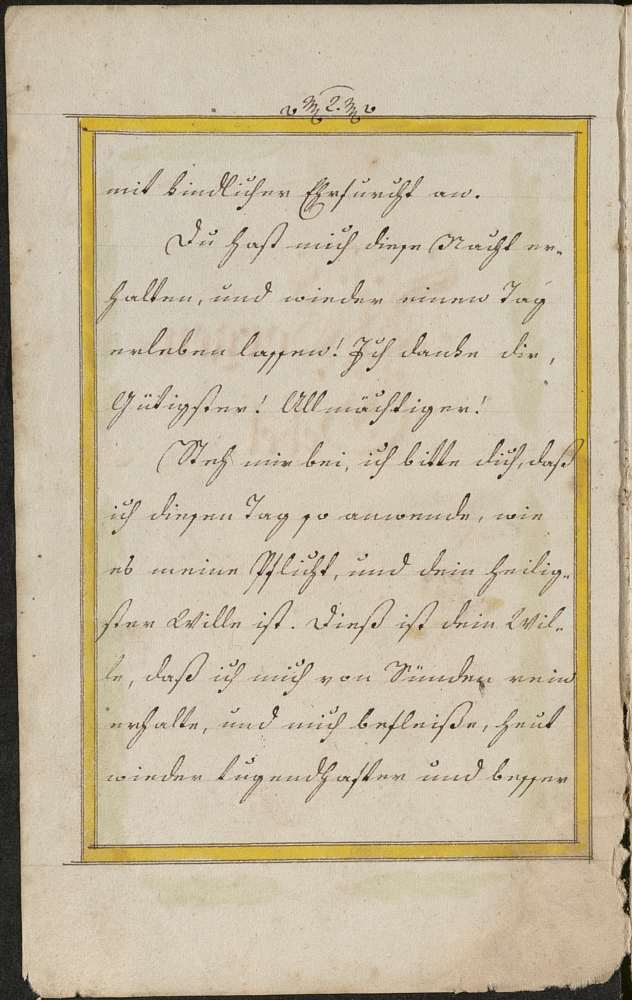 2.
mit kindlicher Ehrfurcht an.
Du hast mich diese Nacht er-
halten, und wieder einen Tag
erleben lassen! Ich danke dir,
Gütigster! Allmächtiger!
Steh mir bei, ich bitte dich, daß
ich diesen Tag so anwende, wie
es meine Pflicht, und dein heilig-
ster Wille ist. Dieß ist dein Wil-
le, daß ich mich von Sünden rein
erhalte, und mich befleiße, heut
wieder tugendhafter und besser